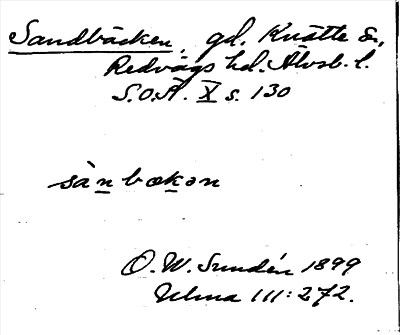 Sandbäcken, gd. Knätte sn,
Redvägs hd. Älvsb. l.
S.O.Ä. X s. 130
sànbækən
O.W. Sundén 1899
Ulma 111:272.